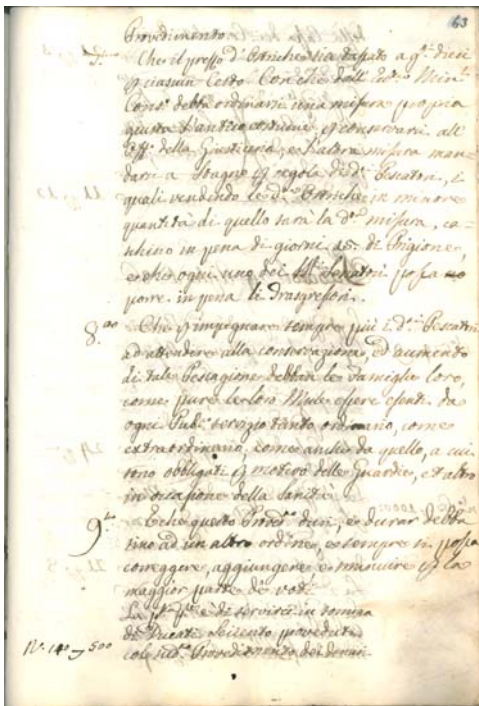 63
Provedimento
7.mo Che il prezzo d'Ostriche sia tassato a g.ni dieci
p ciascun Cesto. Con ciò dall' Ecc.mo Min.
Cons.o debba ordinarsi una misura propria
giusta l'antico costume, p conservarsi all'
Off.o della Giusticeria, e l'altra misura man-
darsi a Stagno p regola di d.i Pescatori, li
quali vendendo le d.e Ostriche in minore
quantità di quello sarà la d.a misura, ca-
schino in pena di giorni 15. di Prigione,
e che ogni uno dei SS.ri Senatori possa
porre in pena li Trasgressori.
8.vo Che p impegnare sempre più i d.i Pescatori
ad attendere alla conservazione, ed aumento
di tale Pescagione debban le famiglie loro,
come pure le loro Mule essere esenti da
ogni Pub.o servizio tanto ordinario, come
extraordinario, come anche da quello, a cui
sono obbligati p motivo delle Guardie, et altro
in occasione della Sanità.
9.no E che questo Proved.to duri, e durar debba
sino ad un altro ordine, e sempre si possa
correggere, aggiungere e minuire p la
maggior parte de' voti.
La p.te e di servirsi in somma
di Ducati Seicento proveduta
col sud.o Provedimento dei denari
N. 140 500